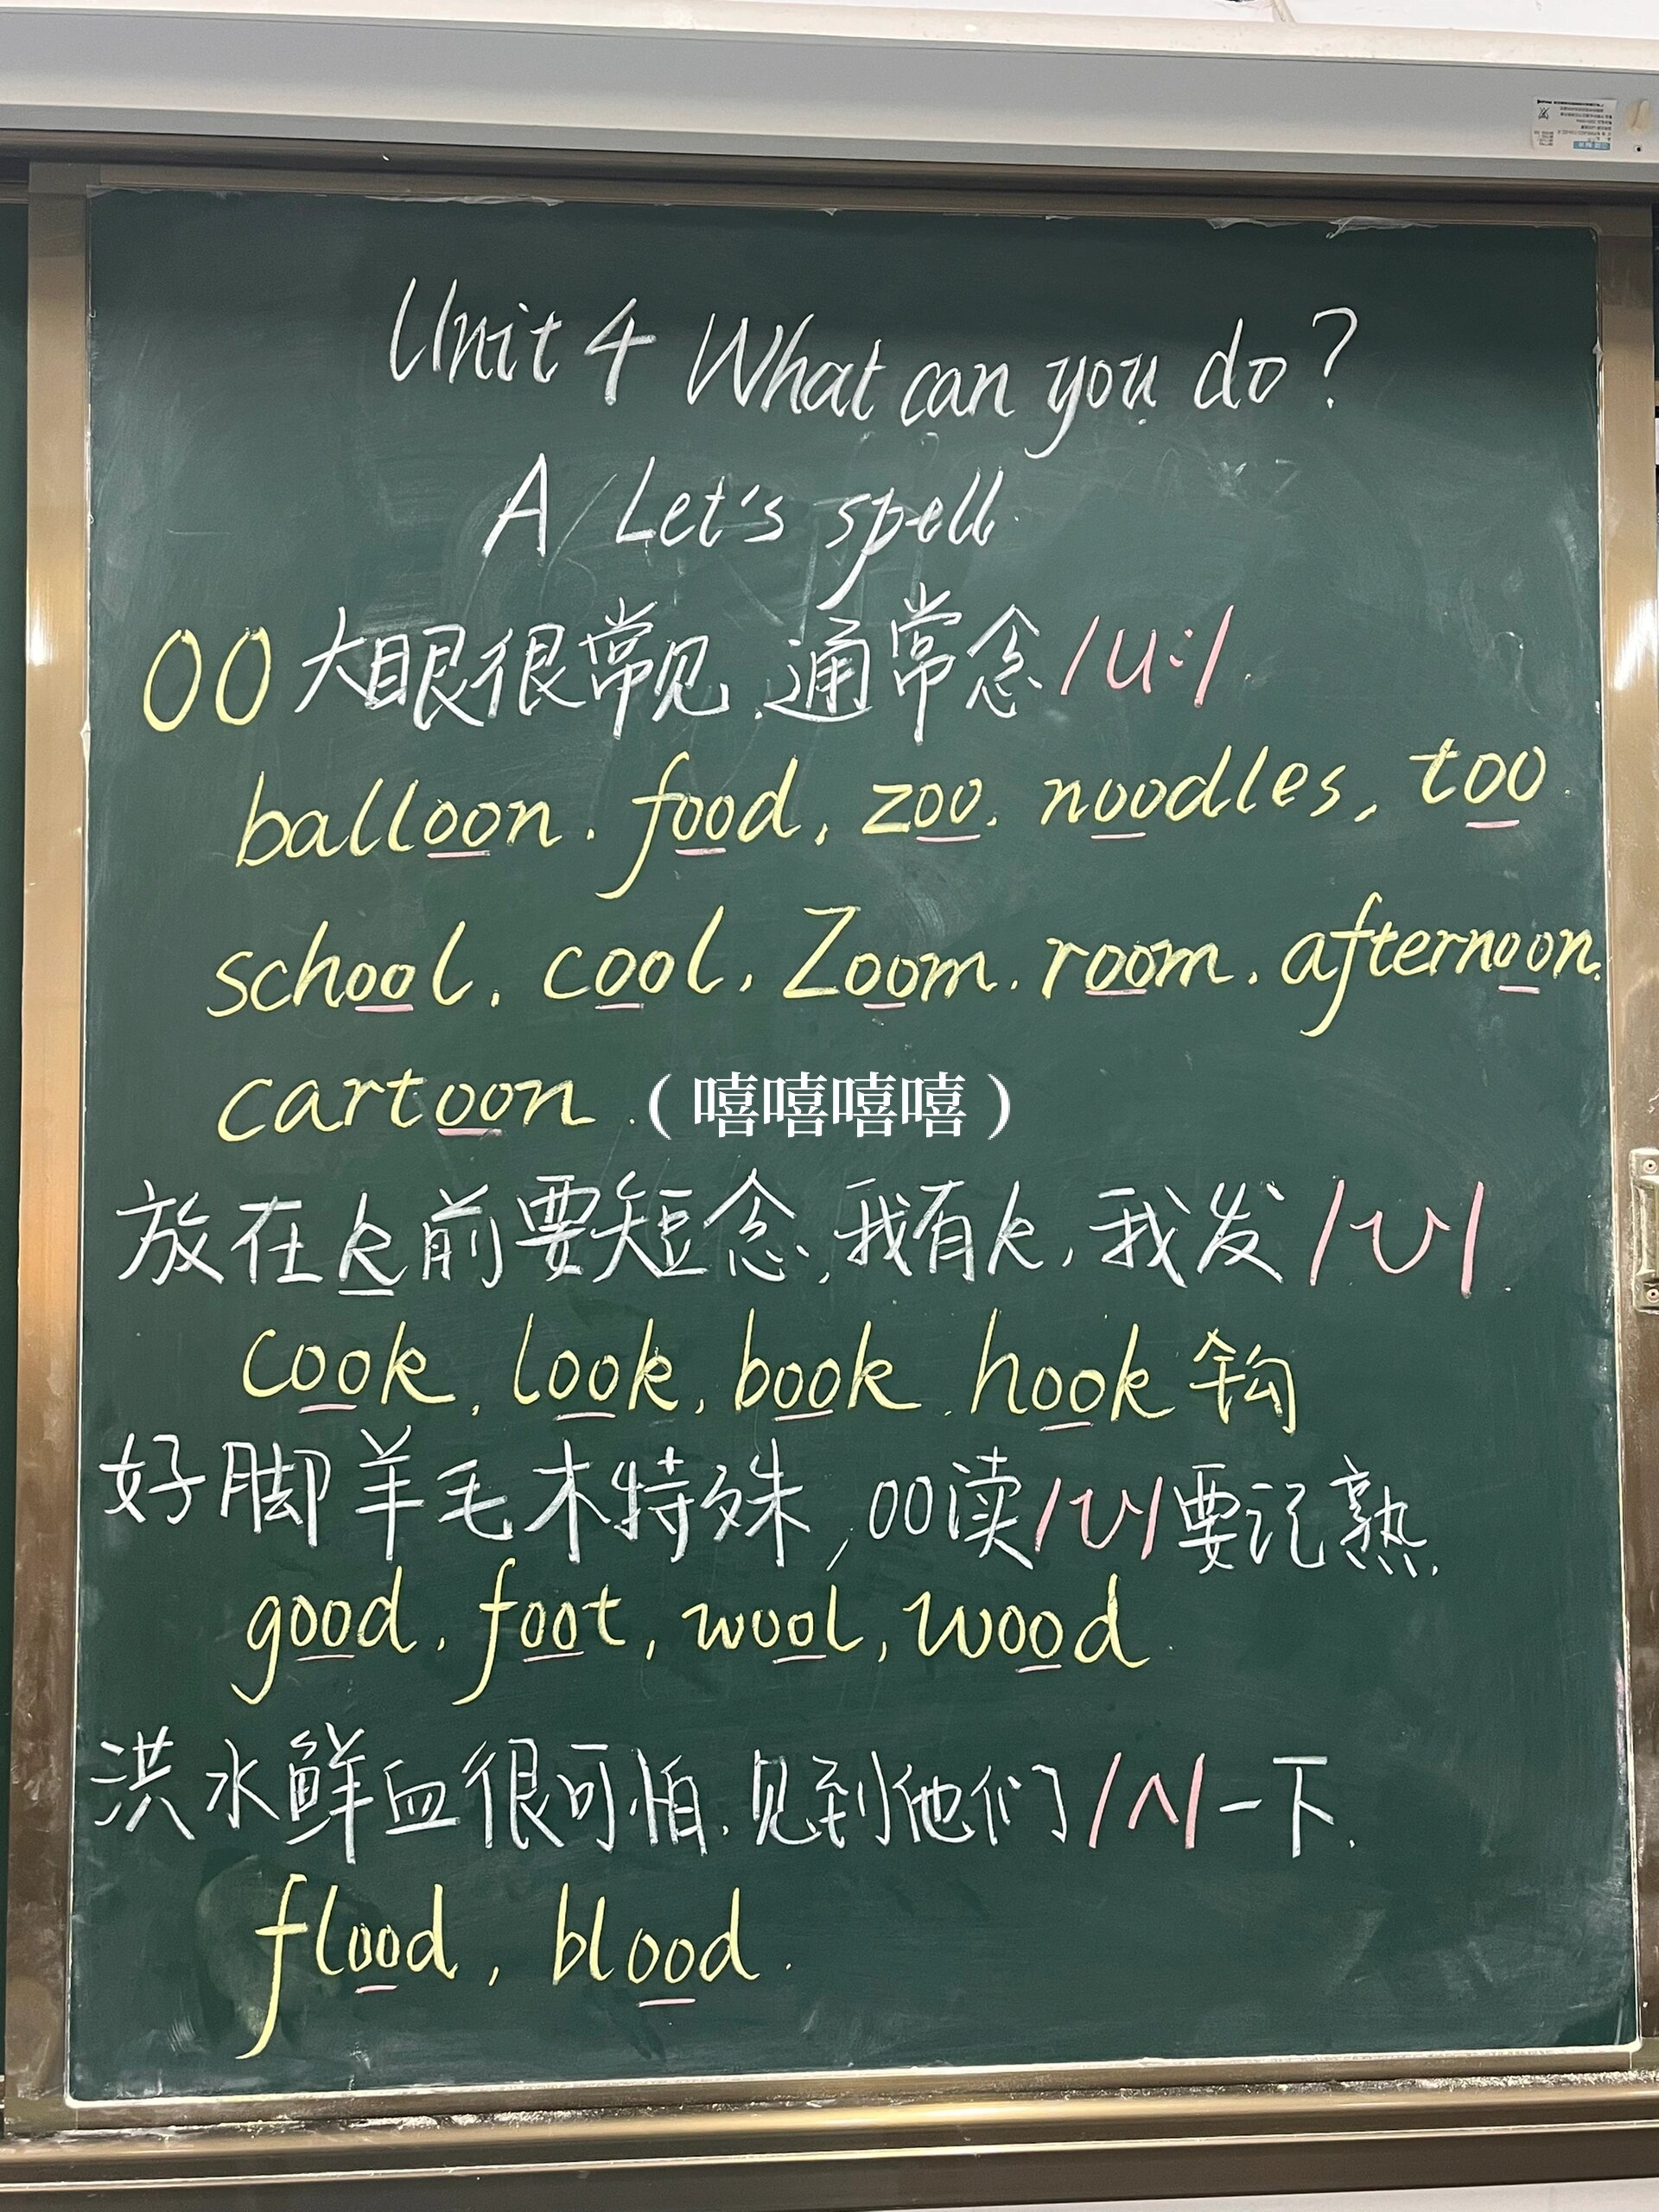 Unit 4 What can you do?
A Let's spell.
oo大眼很常见,通常念/u:/.
balloon. food, zoo, noodles, too
school, cool, Zoom, room, afternoon.
cartoon.(嘻嘻嘻嘻)
放在k前要短念,我有k,我发/ʊ/.
cook, look, book, hook 钩
好脚羊毛木特殊,oo读/ʊ/要记熟.
good, foot, wool, wood
洪水鲜血很可怕,见到他们/ʌ/一下.
flood, blood.